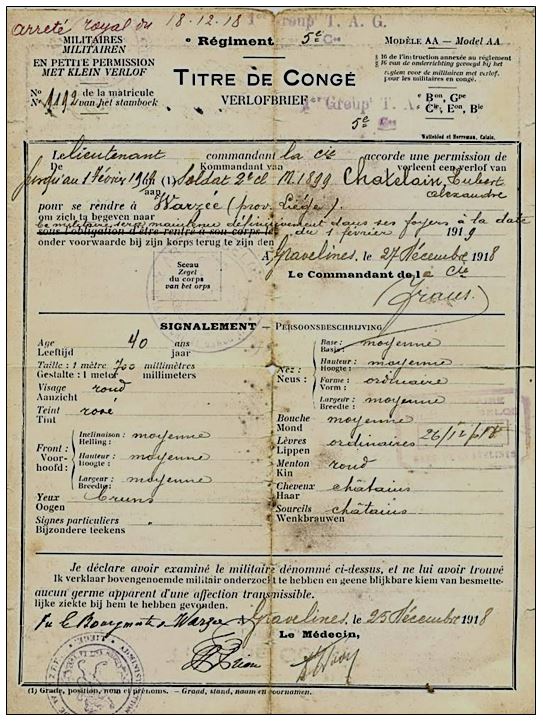 Arreté royal du 18-12-18
1er Group T. A. G.
MILITAIRES
MILITAIREN
EN PETITE PERMISSION
MET KLEIN VERLOF
e Régiment 5e Cie
MODÈLE AA — Model AA
§ 16 de l'instruction annexée au règlement
§ 16 van de onderrichting gevoegd bij het
regiem voor de militairen met verlof.
pour les militaires en congé.
No 1192 de la matricule
No van het stamboek
TITRE DE CONGÉ
VERLOFBRIEF
1er Group T. A.
5e Cie
e Bon, Gpe
Cie, Eon, Bie
Watteblod et Herreman, Calais.
Le lieutenant commandant la Cie accorde une permission de
De Kommandant van verleent een verlof van
jusqu'au 1 février 19 (1) Soldat 2e cl M. 1899 Chatelain, Hubert
aan Alexandre
pour se rendre à Warzée (prov. Liége).
om zich te begeven naar
Ce militaire sera maintenu définitivement dans ses foyers à la date
sous l'obligation d'être rentré à son corps le du 1 février 1919
onder voorwaarde bij zijn korps terug te zijn den
A Gravelines, le 27 Décembre 1918
Sceau
Zegel
du corps
van het orps
Le Commandant de la Cie
SIGNALEMENT — PERSOONSBESCHRIJVING
Age 40 ans
Leeftijd jaar
Taille : 1 mètre 700 millimètres
Gestalte : 1 meter millimeters
Visage rond
Aanzicht
Teint rosé
Tint
Front :
Voorhoofd :
Inclinaison : moyenne
Helling :
Hauteur : moyenne
Hoogte :
Largeur : moyenne
Breedte :
Yeux bruns
Oogen
Signes particuliers
Bijzondere teekens
Nez :
Neus :
Base : moyenne
Basis :
Hauteur : moyenne
Hoogte :
Forme : ordinaire
Vorm :
Largeur : moyenne
Breedte :
Bouche moyenne
Mond
Lèvres ordinaires
Lippen
26/12/18
Menton rond
Kin
Cheveux châtains
Haar
Sourcils châtains
Wenkbrauwen
Je déclare avoir examiné le militaire dénommé ci-dessus, et ne lui avoir trouvé
Ik verklaar bovengenoemde militair onderzocht te hebben en geene blijkbare kiem van besmette-
aucun germe apparent d'une affection transmissible.
lijke ziekte bij hem te hebben gevonden.
Vu le Bourgmestre de Warzée A Gravelines, le 25 Décembre 1918
Le Médecin,
(1) Grade, position, nom et prénoms. — Graad, stand, naam en voornamen.